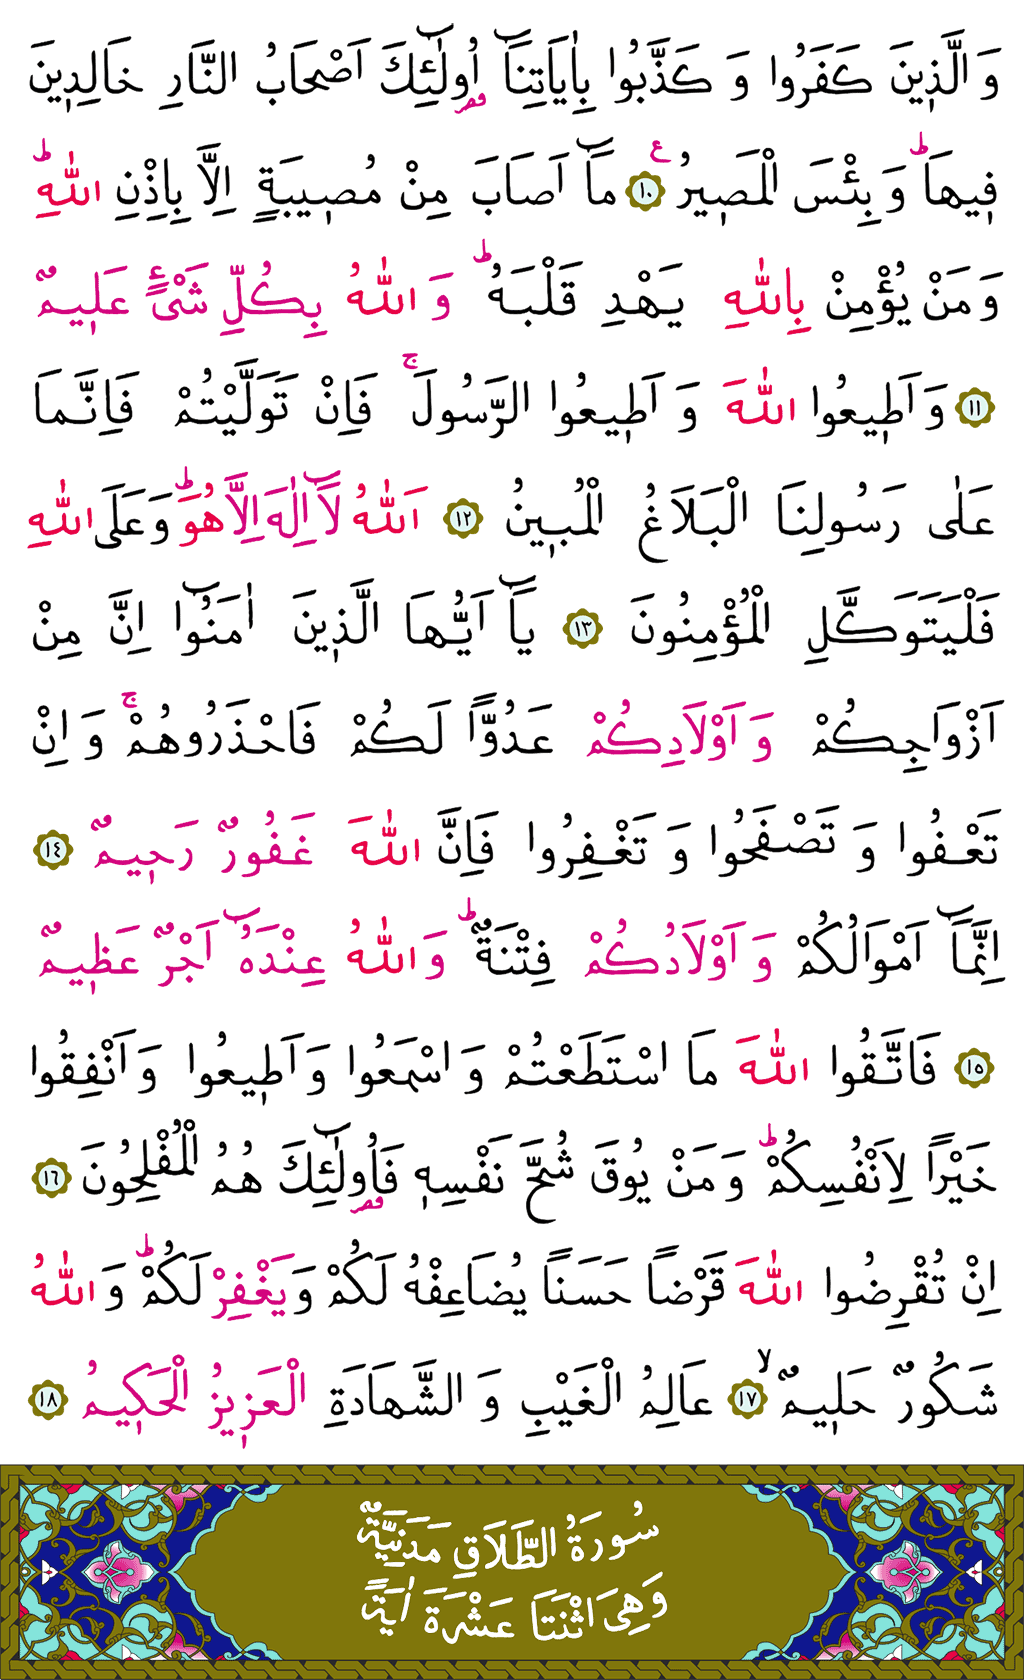 وَالَّذ۪ينَ كَفَرُوا وَكَذَّبُوا بِاٰيَاتِنَٓا اُو۬لٰٓئِكَ اَصْحَابُ النَّارِ خَالِد۪ينَ
ف۪يهَاۜ وَبِئْسَ الْمَص۪يرُ ﴿١٠﴾ مَٓا اَصَابَ مِنْ مُص۪يبَةٍ اِلَّا بِاِذْنِ اللّٰهِۜ
وَمَنْ يُؤْمِنْ بِاللّٰهِ يَهْدِ قَلْبَهُۜ وَاللّٰهُ بِكُلِّ شَيْءٍ عَل۪يمٌ
﴿١١﴾ وَاَط۪يعُوا اللّٰهَ وَاَط۪يعُوا الرَّسُولَۚ فَاِنْ تَوَلَّيْتُمْ فَاِنَّمَا
عَلٰى رَسُولِنَا الْبَلَاغُ الْمُب۪ينُ ﴿١٢﴾ اَللّٰهُ لَٓا اِلٰهَ اِلَّا هُوَۜ وَعَلَى اللّٰهِ
فَلْيَتَوَكَّلِ الْمُؤْمِنُونَ ﴿١٣﴾ يَٓا اَيُّهَا الَّذ۪ينَ اٰمَنُٓوا اِنَّ مِنْ
اَزْوَاجِكُمْ وَاَوْلَادِكُمْ عَدُوًّا لَكُمْ فَاحْذَرُوهُمْۚ وَاِنْ
تَعْفُوا وَتَصْفَحُوا وَتَغْفِرُوا فَاِنَّ اللّٰهَ غَفُورٌ رَح۪يمٌ ﴿١٤﴾
اِنَّمَٓا اَمْوَالُكُمْ وَاَوْلَادُكُمْ فِتْنَةٌۜ وَاللّٰهُ عِنْدَهُٓ اَجْرٌ عَظ۪يمٌ
﴿١٥﴾ فَاتَّقُوا اللّٰهَ مَا اسْتَطَعْتُمْ وَاسْمَعُوا وَاَط۪يعُوا وَاَنْفِقُوا
خَيْرًا لِاَنْفُسِكُمْۜ وَمَنْ يُوقَ شُحَّ نَفْسِه۪ فَاُو۬لٰٓئِكَ هُمُ الْمُفْلِحُونَ ﴿١٦﴾
اِنْ تُقْرِضُوا اللّٰهَ قَرْضًا حَسَنًا يُضَاعِفْهُ لَكُمْ وَيَغْفِرْ لَكُمْۜ وَاللّٰهُ
شَكُورٌ حَل۪يمٌۙ ﴿١٧﴾ عَالِمُ الْغَيْبِ وَالشَّهَادَةِ الْعَز۪يزُ الْحَك۪يمُ ﴿١٨﴾
سُورَةُ الطَّلَاقِ مَدَنِيَّةٌ
وَهِيَ اثْنَتَا عَشْرَةَ اٰيَةً